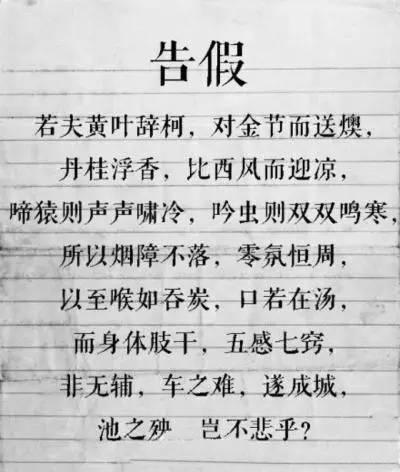 告假
若夫黄叶辞柯，对金节而送燠，
丹桂浮香，比西风而迎凉，
啼猿则声声啸冷，吟虫则双双鸣寒，
所以烟障不落，零氛恒周，
以至喉如吞炭，口若在汤，
而身体肢干，五感七窍，
非无辅，车之难，遂成城，
池之殃 岂不悲乎？